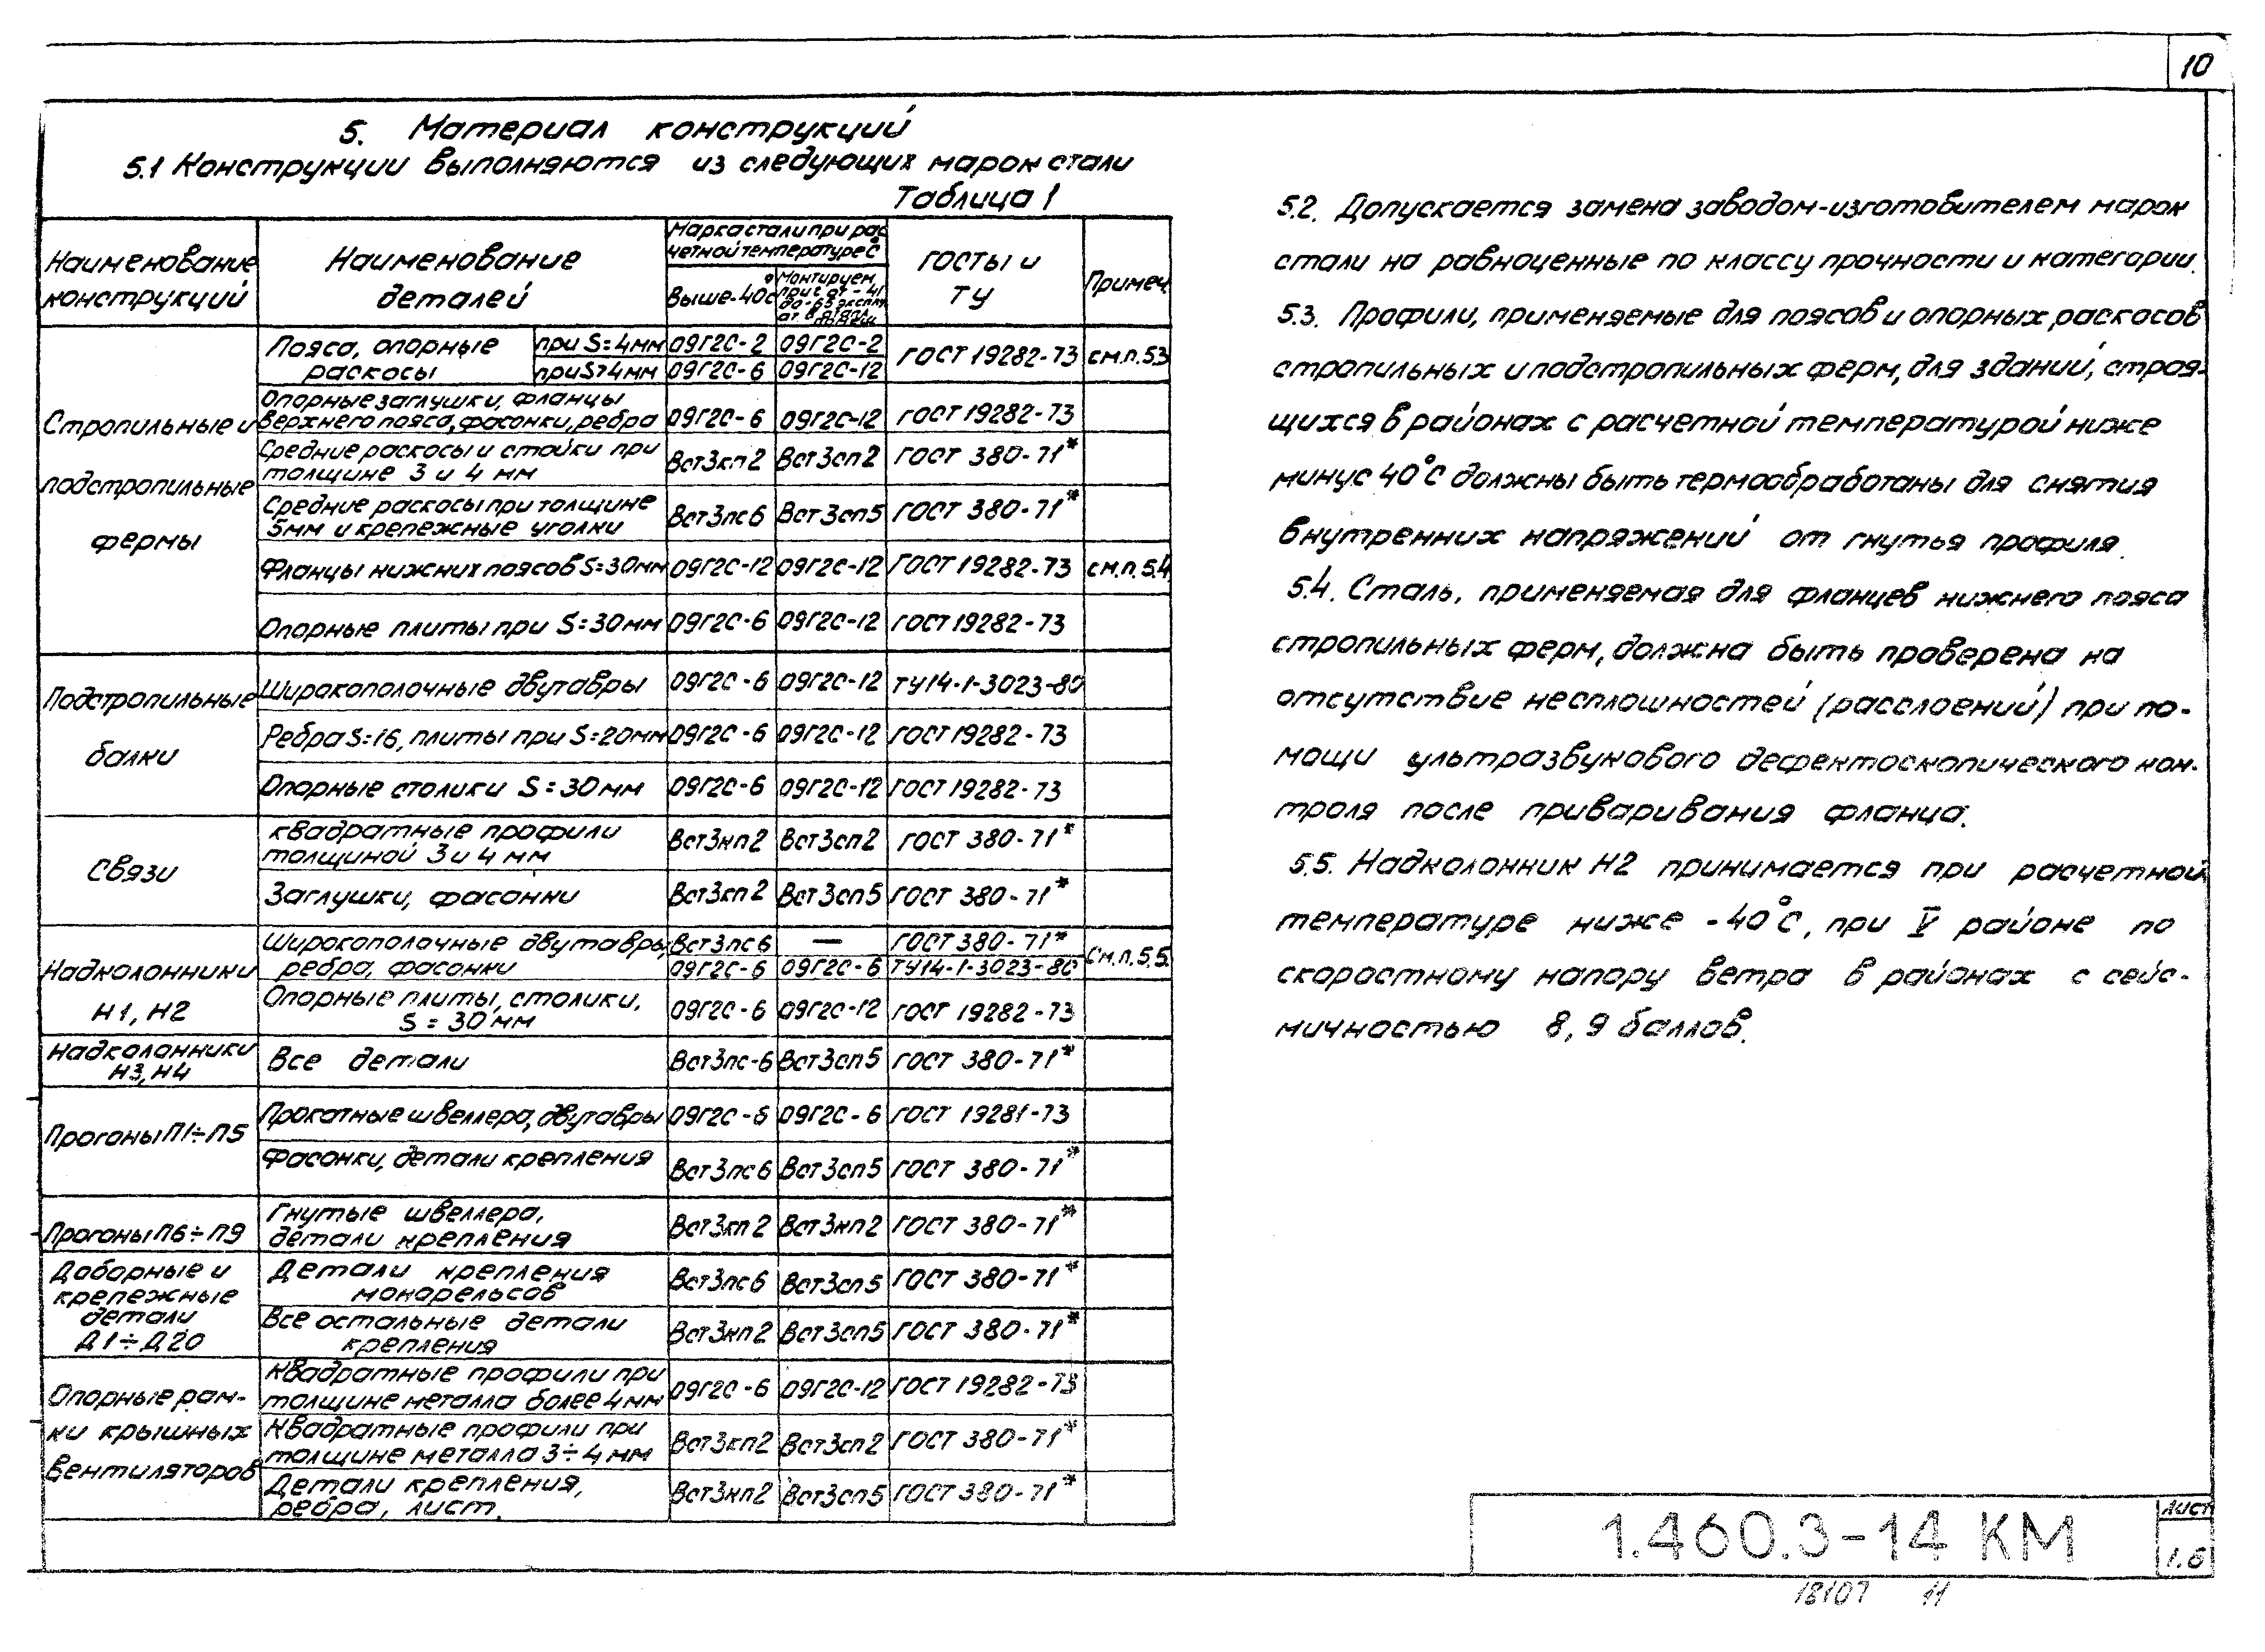 10
5. Материал конструкций
5.1 Конструкции выполняются из следующих марок стали
Таблица 1
Наименование конструкций | Наименование деталей | Марка стали при расчетной температуре °С | ГОСТы и ТУ | Примеч.
Выше -40°С | Монтируем. при t от -41 до -65 экспл.
Стропильные и подстропильные фермы
Пояса, опорные раскосы | при S=4мм | 09Г2С-2 | 09Г2С-2 | ГОСТ 19282-73 | см.п.5.3
при S>4мм | 09Г2С-6 | 09Г2С-12
Опорные заглушки, фланцы
верхнего пояса, фасонки, ребра | 09Г2С-6 | 09Г2С-12 | ГОСТ 19282-73
Средние раскосы и стойки при
толщине 3 и 4 мм | Вст3кп2 | Вст3сп2 | ГОСТ 380-71*
Средние раскосы при толщине
5мм и крепежные уголки | Вст3пс6 | Вст3сп5 | ГОСТ 380-71*
Фланцы нижних поясов S=30мм | 09Г2С-12 | 09Г2С-12 | ГОСТ 19282-73 | см.п.5.4
Опорные плиты при S=30мм | 09Г2С-6 | 09Г2С-12 | ГОСТ 19282-73
Подстропильные балки
Широкополочные двутавры | 09Г2С-6 | 09Г2С-12 | ТУ14-1-3023-80
Ребра S=16, плиты при S=20мм | 09Г2С-6 | 09Г2С-12 | ГОСТ 19282-73
Опорные столики S=30мм | 09Г2С-6 | 09Г2С-12 | ГОСТ 19282-73
Связи
квадратные профили
толщиной 3 и 4 мм | Вст3кп2 | Вст3сп2 | ГОСТ 380-71*
Заглушки, фасонки | Вст3кп2 | Вст3сп5 | ГОСТ 380-71*
Надколонники Н1, Н2
Широкополочные двутавры, | Вст3пс6 | — | ГОСТ 380-71* | См.п.5.5
ребра, фасонки | 09Г2С-6 | 09Г2С-6 | ТУ14-1-3023-80
Опорные плиты, столики,
S=30мм | 09Г2С-6 | 09Г2С-12 | ГОСТ 19282-73
Надколонники Н3, Н4 | Все детали | Вст3пс-6 | Вст3сп5 | ГОСТ 380-71*
Прогоны П1÷П5
Прокатные швеллера, двутавры | 09Г2С-6 | 09Г2С-6 | ГОСТ 19281-73
Фасонки, детали крепления | Вст3пс6 | Вст3сп5 | ГОСТ 380-71*
Прогоны П6÷П9
Гнутые швеллера,
детали крепления | Вст3кп2 | Вст3кп2 | ГОСТ 380-71*
Доборные и крепежные детали Д1÷Д20
Детали крепления
монорельсов | Вст3пс6 | Вст3сп5 | ГОСТ 380-71*
Все остальные детали
крепления | Вст3кп2 | Вст3сп5 | ГОСТ 380-71*
Опорные рамки крышных вентиляторов
Квадратные профили при
толщине металла более 4мм | 09Г2С-6 | 09Г2С-12 | ГОСТ 19282-73
Квадратные профили при
толщине металла 3÷4 мм | Вст3кп2 | Вст3сп2 | ГОСТ 380-71*
Детали крепления,
ребра, лист. | Вст3кп2 | Вст3сп5 | ГОСТ 380-71*
5.2. Допускается замена заводом-изготовителем марок
стали на равноценные по классу прочности и категории.
5.3. Профили, применяемые для поясов и опорных раскосов
стропильных и подстропильных ферм, для зданий, строя-
щихся в районах с расчетной температурой ниже
минус 40°С должны быть термообработаны для снятия
внутренних напряжений от гнутья профиля.
5.4. Сталь, применяемая для фланцев нижнего пояса
стропильных ферм, должна быть проверена на
отсутствие несплошностей (расслоений) при по-
мощи ультразвукового дефектоскопического кон-
троля после приваривания фланца.
5.5. Надколонник Н2 принимается при расчетной
температуре ниже -40°С, при V районе по
скоростному напору ветра в районах с сейс-
мичностью 8, 9 баллов.
1.460.3-14 КМ
Лист
1.6
18107 11